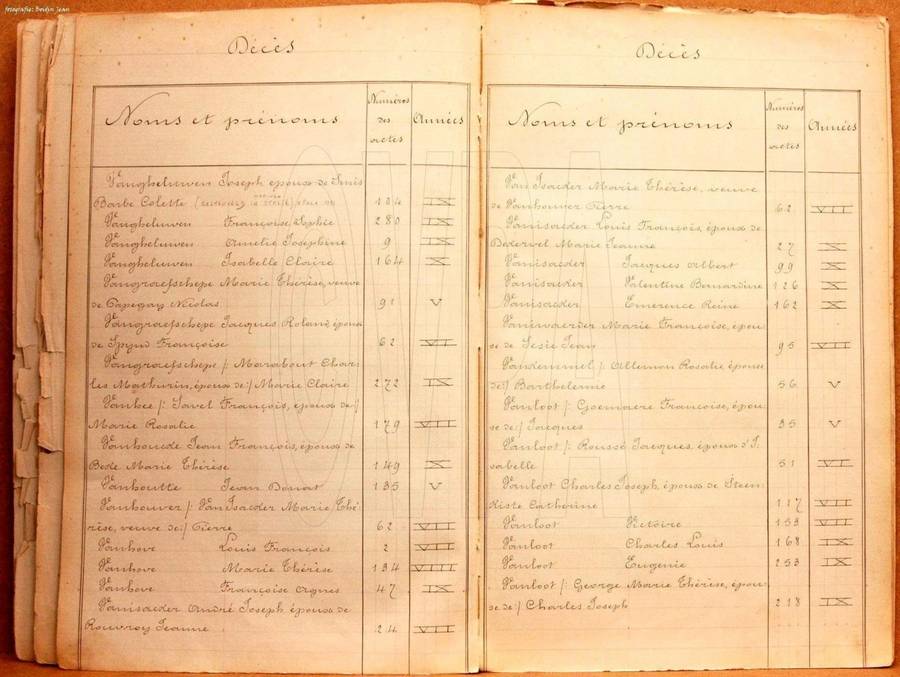 fotografie: Boidin Jean
Décès
Noms et prénoms Numéros des actes Années
Vangheluwen Joseph époux de Smis
Barbe Colette 104 IX
Vangheluwen Françoise Sophie 280 IX
Vangheluwen Amelie Josephine 9 IX
Vangheluwen Isabelle Claire 164 X
Vangraefschepe Marie Thérèse, veuve
de Papegay Nicolas 91 V
Vangraefschepe Jacques Roland, époux
de Spynd Françoise 62 VII
Vangraefschepe /: Marabout Char
les Mathurin, époux de:/ Marie Claire 272 IX
Vanhee /: Savel François, époux de:/
Marie Rosalie 179 VII
Vanhouede Jean François, époux de
Bede Marie Thérèse 149 X
Vanhoutte Jean Donat 135 V
Vanhouver /: Van Isacker Marie Thé
rèse, veuve de:/ Pierre 62 VII
Vanhove Louis François 2 VII
Vanhove Marie Thérèse 134 VIII
Vanhove Françoise Agnes 47 IX
Vanisacker André Joseph époux de
Rouvroy Jeanne 24 VII
Décès
Noms et prénoms Numéros des actes Années
Van Isacker Marie Thérèse, veuve
de Vanhouver Pierre 62 VII
Vanisacker Louis François, époux de
Bedervel Marie Jeanne 27 X
Vanisacker Jacques Albert 99 X
Vanisacker Valentine Bernardine 126 X
Vanisacker Emerence Reine 162 X
Vaniwaerder Marie Françoise, épou
se de Sesie Jean 95 VII
Vankemmel /: Allemon Rosalie, épouse
de:/ Barthelemie 56 V
Vanloot /: Goemaere Francoise, épou
se de:/ Jacques 35 V
Vanloot /: Roussé Jacques, époux d'I
sabelle 51 VI
Vanloot Charles Joseph, époux de Steen
kiste Catherine 117 VII
Vanloot Victoire 153 VII
Vanloot Charles Louis 168 IX
Vanloot Eugenie 253 IX
Vanloot /: George Marie Thérèse, épou
se de:/ Charles Joseph 218 IX